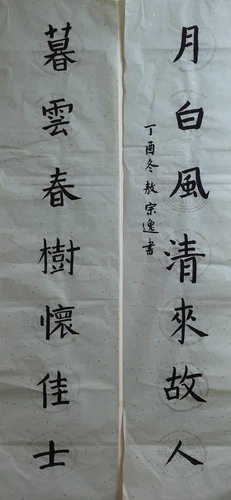 月白風清來故人
丁酉冬敖宗逸書
暮雲春樹懷佳士